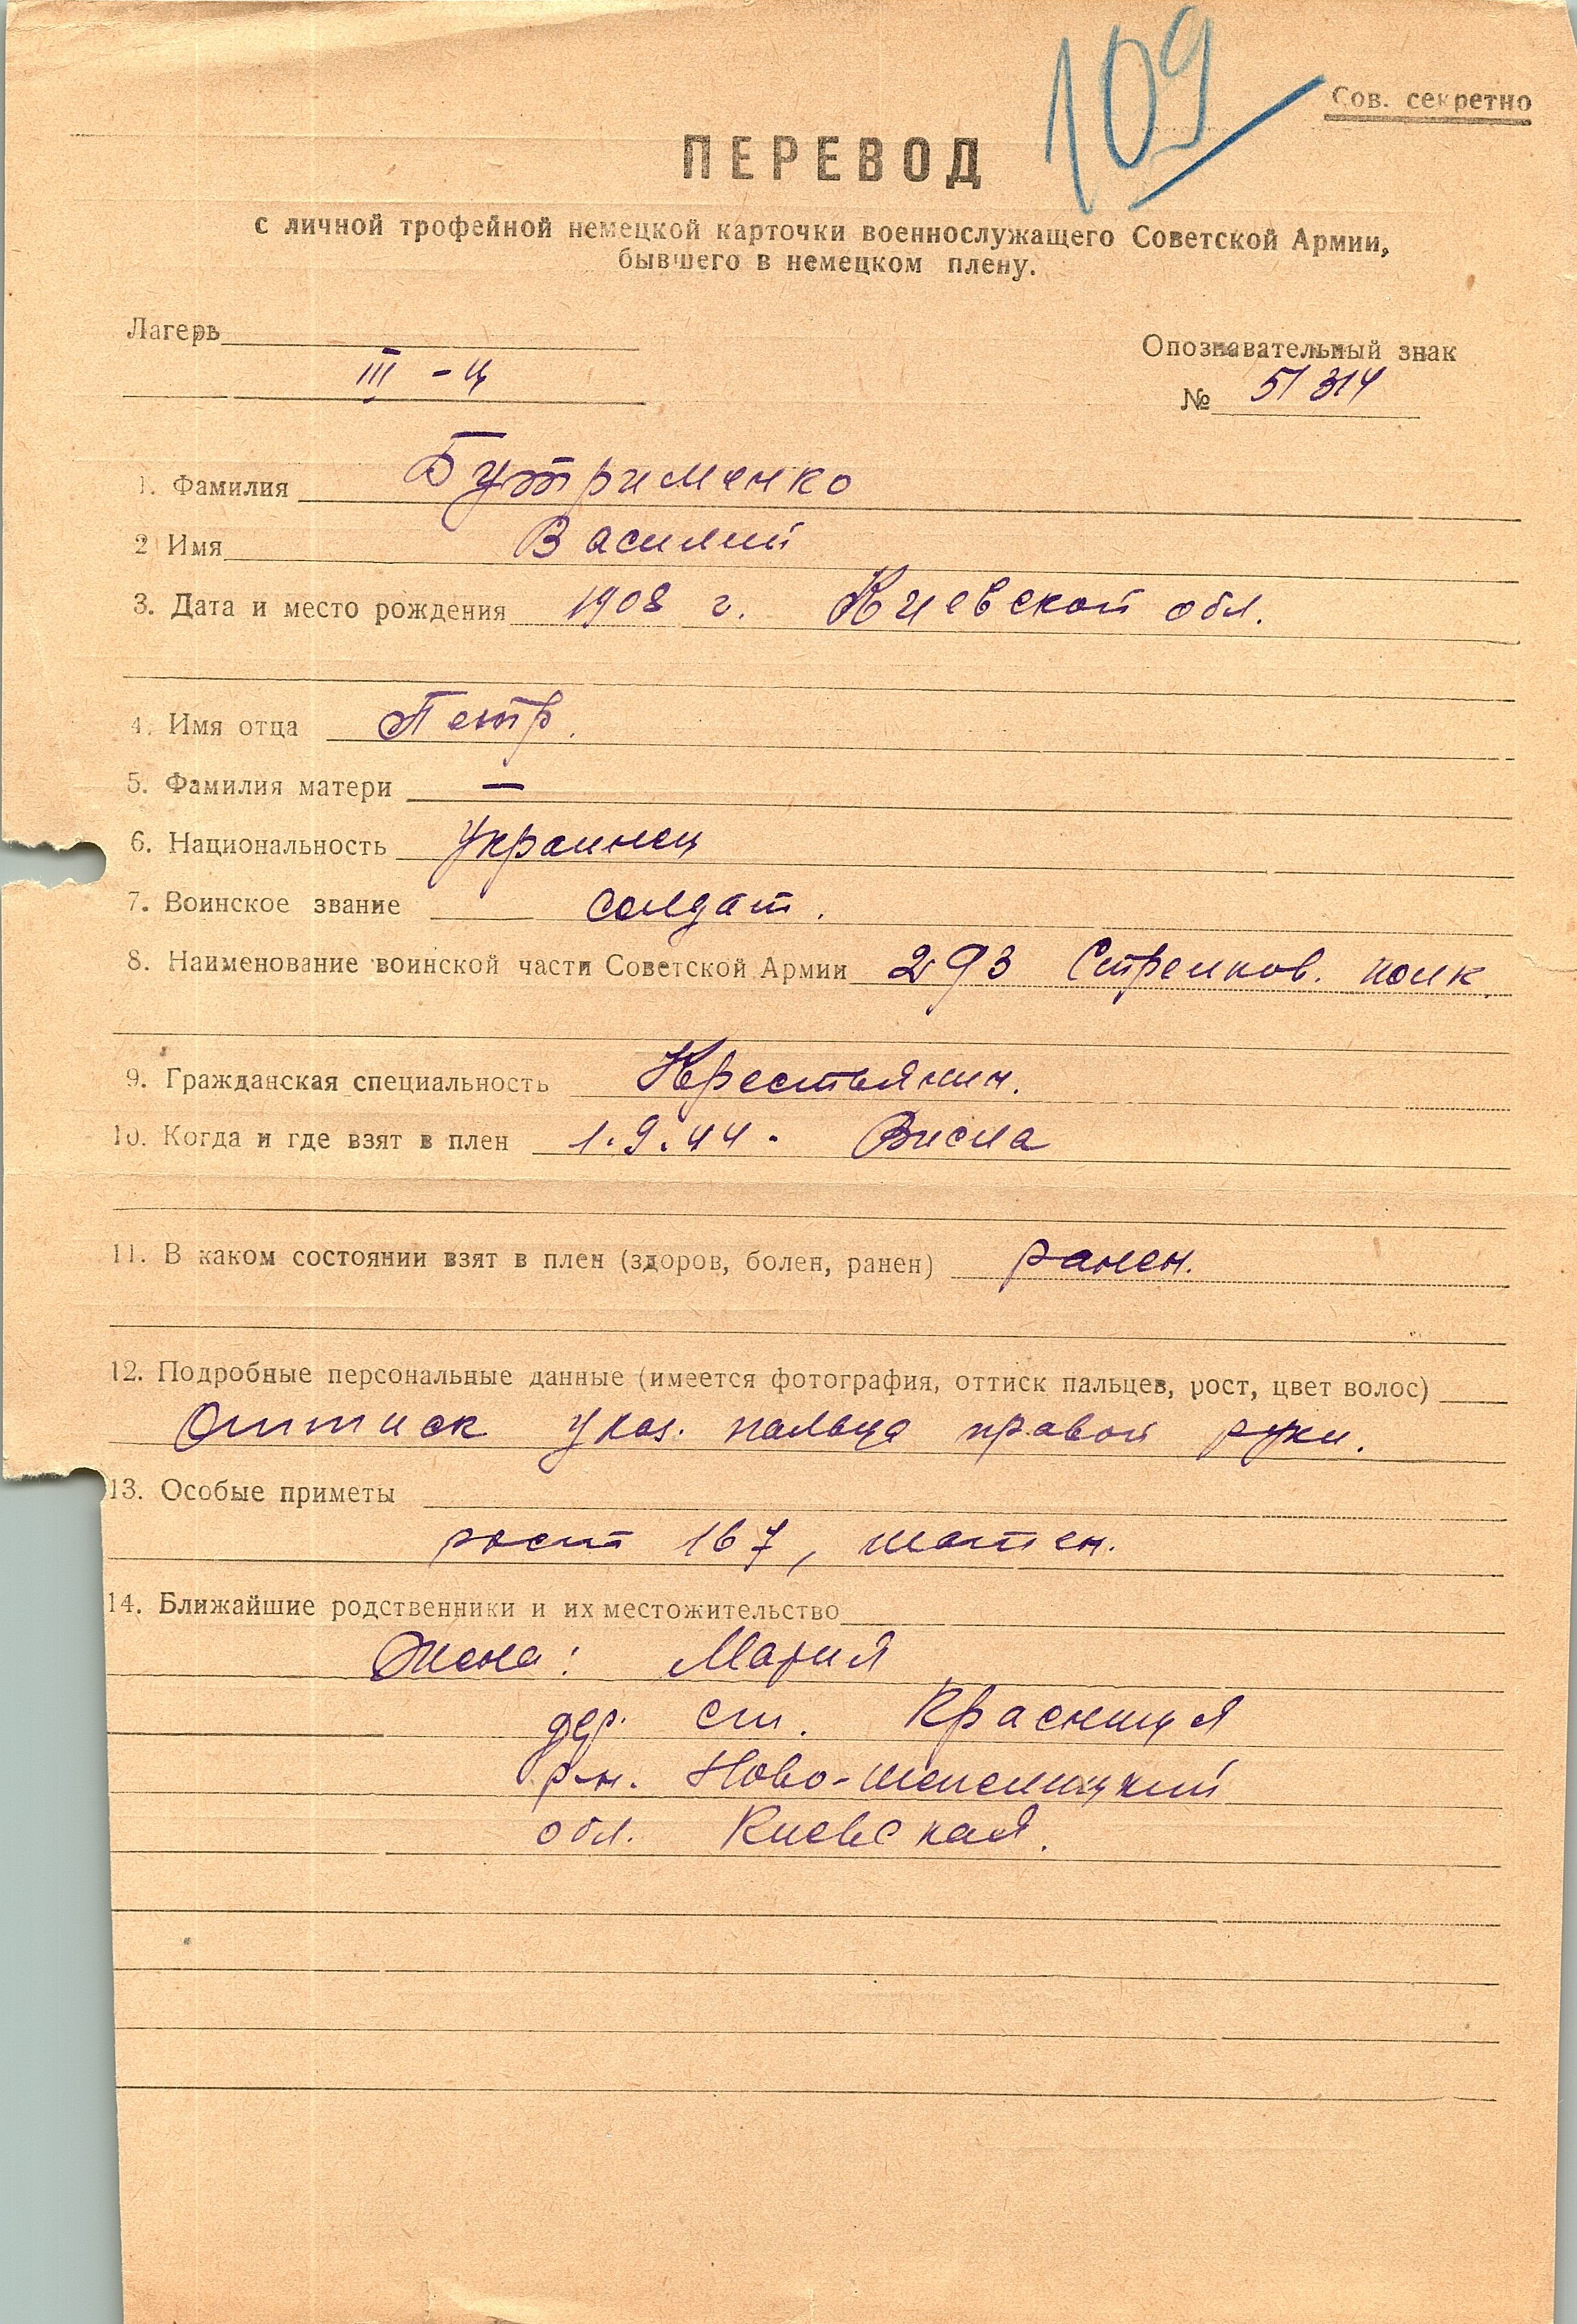 109
Сов. секретно
ПЕРЕВОД
с личной трофейной немецкой карточки военнослужащего Советской Армии,
бывшего в немецком плену.
Лагерь
III - Ц
Опознавательный знак
№ 51314
1. Фамилия Бутрименко
2 Имя Василий
3. Дата и место рождения 1908 г. Киевской обл.
4. Имя отца Петр.
5. Фамилия матери —
6. Национальность украинец
7. Воинское звание солдат.
8. Наименование воинской части Советской Армии 293 Стрелков. полк.
9. Гражданская специальность Крестьянин.
10. Когда и где взят в плен 1.9.44. Висла
11. В каком состоянии взят в плен (здоров, болен, ранен) ранен.
12. Подробные персональные данные (имеется фотография, оттиск пальцев, рост, цвет волос)
Оттиск указ. пальца правой руки.
13. Особые приметы
рост 167, шатен.
14. Ближайшие родственники и их местожительство
Жена: Мария
дер. ст. Красница
р-н. Ново-шепелицкий
обл. Киевская.